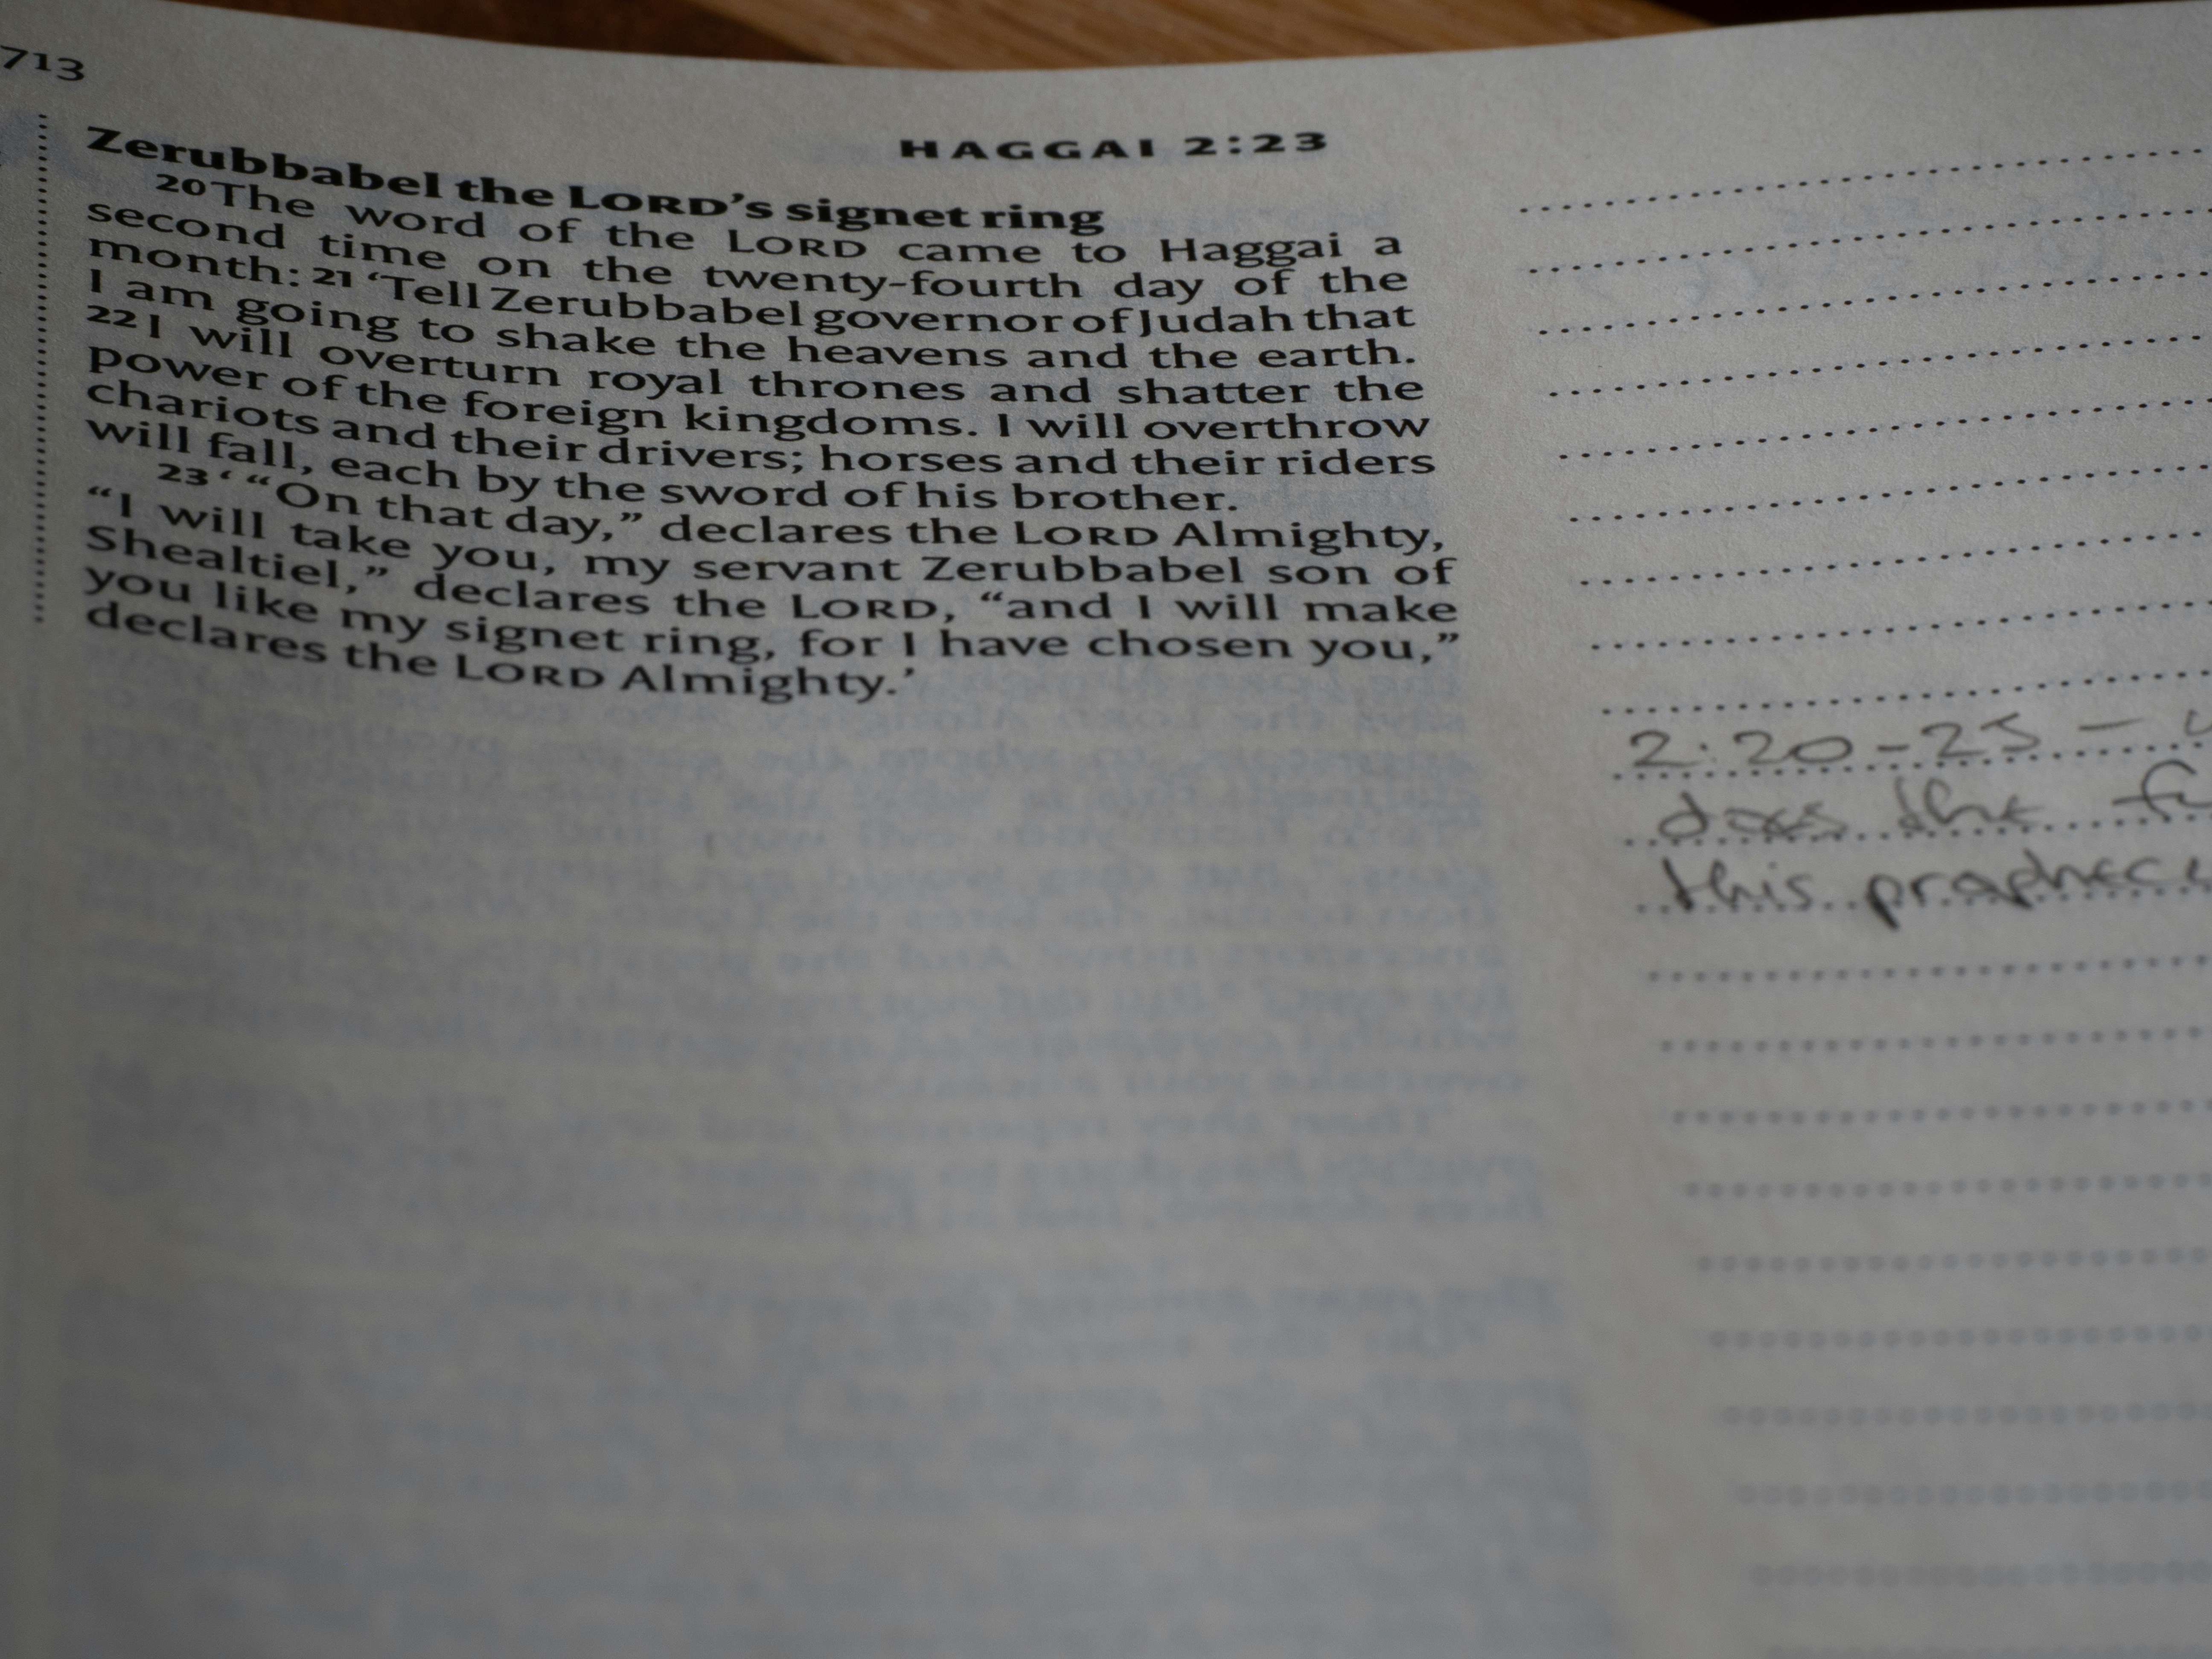 713
HAGGAI 2:23
Zerubbabel the LORD’s signet ring
20 The word of the LORD came to Haggai a
second time on the twenty-fourth day of the
month: 21 ‘Tell Zerubbabel governor of Judah that
I am going to shake the heavens and the earth.
22 I will overturn royal thrones and shatter the
power of the foreign kingdoms. I will overthrow
chariots and their drivers; horses and their riders
will fall, each by the sword of his brother.
23 ‘ “On that day,” declares the LORD Almighty,
“I will take you, my servant Zerubbabel son of
Shealtiel,” declares the LORD, “and I will make
you like my signet ring, for I have chosen you,”
declares the LORD Almighty.’
2:20-23 –
does the
this